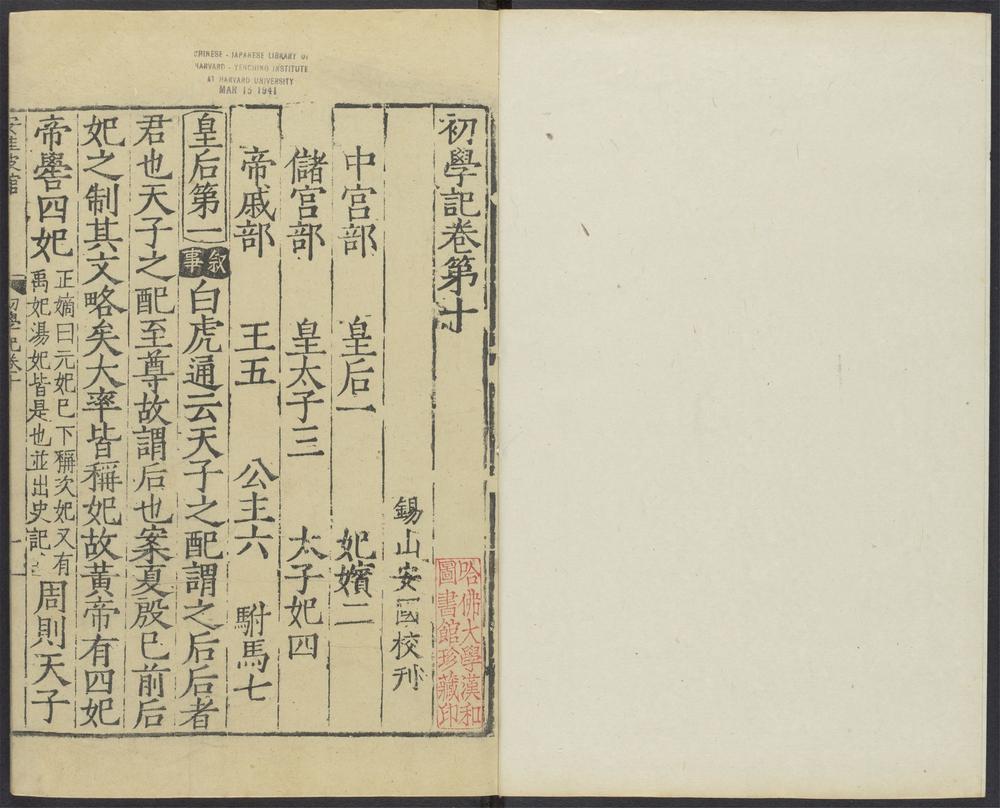 CHINESE - JAPANESE LIBRARY OF
HARVARD - YENCHING INSTITUTE
AT HARVARD UNIVERSITY
MAR 15 1941
初學記卷第十
哈佛大學漢和
圖書館珍藏印
錫山安國校刋
中宮部 皇后一 妃嬪二
儲宮部 皇太子三 太子妃四
帝戚部 王五 公主六 駙馬七
皇后第一 叙事 白虎通云天子之配謂之后后者
君也天子之配至尊故謂后也案夏殷巳前后
妃之制其文略矣大率皆稱妃故黃帝有四妃
帝嚳四妃 正嫡曰元妃巳下稱次妃又有
禹妃湯妃皆是也並出史記 周則天子
安桂坡館 初學記卷十 一